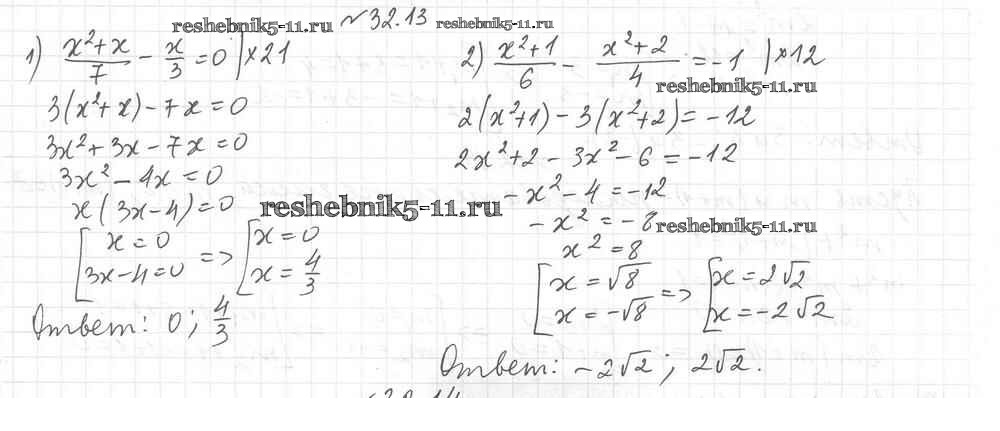 №32.13
reshebnik5-11.ru
reshebnik5-11.ru
1) (x²+x)/7 - x/3 = 0 |×21
3(x²+x) - 7x = 0
3x²+3x-7x=0
3x²-4x=0
x(3x-4)=0
[x=0 => [x=0
[3x-4=0 [x=4/3
Ответ: 0; 4/3
reshebnik5-11.ru
2) (x²+1)/6 - (x²+2)/4 = -1 |×12
reshebnik5-11.ru
2(x²+1) - 3(x²+2) = -12
2x²+2-3x²-6=-12
-x²-4=-12
-x²=-8
reshebnik5-11.ru
x²=8
[x=√8 => [x=2√2
[x=-√8 [x=-2√2
Ответ: -2√2; 2√2.